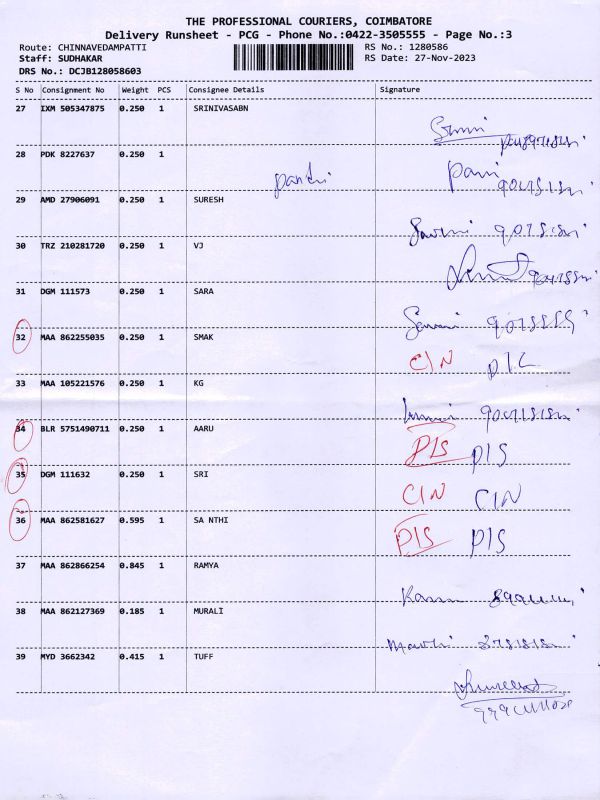 THE PROFESSIONAL COURIERS, COIMBATORE
Delivery Runsheet - PCG - Phone No.:0422-3505555 - Page No.:3
Route: CHINNAVEDAMPATTI RS No.: 1280586
Staff: SUDHAKAR RS Date: 27-Nov-2023
DRS No.: DCJB128058603
S No Consignment No Weight PCS Consignee Details Signature
27 IXM 505347875 0.250 1 SRINIVASABN
28 PDK 8227637 0.250 1
29 AMD 27906091 0.250 1 SURESH
30 TRZ 210281720 0.250 1 VJ
31 DGM 111573 0.250 1 SARA
32 MAA 862255035 0.250 1 SMAK
CIN
33 MAA 105221576 0.250 1 KG
34 BLR 5751490711 0.250 1 AARU
PIS PIS
35 DGM 111632 0.250 1 SRI
CIN CIN
36 MAA 862581627 0.595 1 SA NTHI
PIS PIS
37 MAA 862866254 0.845 1 RAMYA
38 MAA 862127369 0.185 1 MURALI
39 MYD 3662342 0.415 1 TUFF